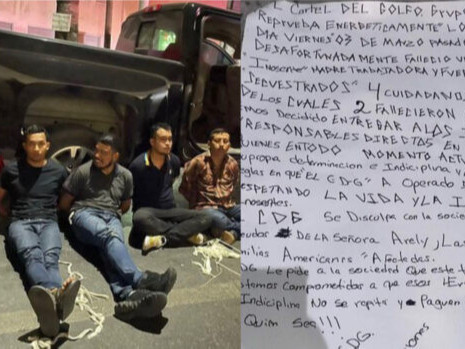 L Cartel DEL GOLFO, Grupo
REPRUEBA ENERGETICAMENTE LO
DIA VIERNES 03 DE MARZO PASAD
DESAFORTUNADAMENTE FALLECIO U
Inosente MADRE TRABAJADORA Y FUE
SECUESTRADOS" 4 CUIDADANO
DE LOS CUALES 2 FALLECIERON
mos Decidido ENTREGAR A LOS
RESPONSABLES DIRECTOS EN
UIENES EN TODO MOMENTO ACTU
propia determinacion e Indiciplina y
eglas en que EL CDG" A Operado S
ESPETANDO LA VIDA Y LA I
nosentes.
CDG Se Disculpa con la socie
eudos DE LA SEÑORA Arely, Las
milias AMERICANAS" Afectadas.
DG Le pide a la sociedad que este t
tamos Comprometidos a que esos
Indiciplina No se repita y Paguen
Quim Sea!!!
DG.